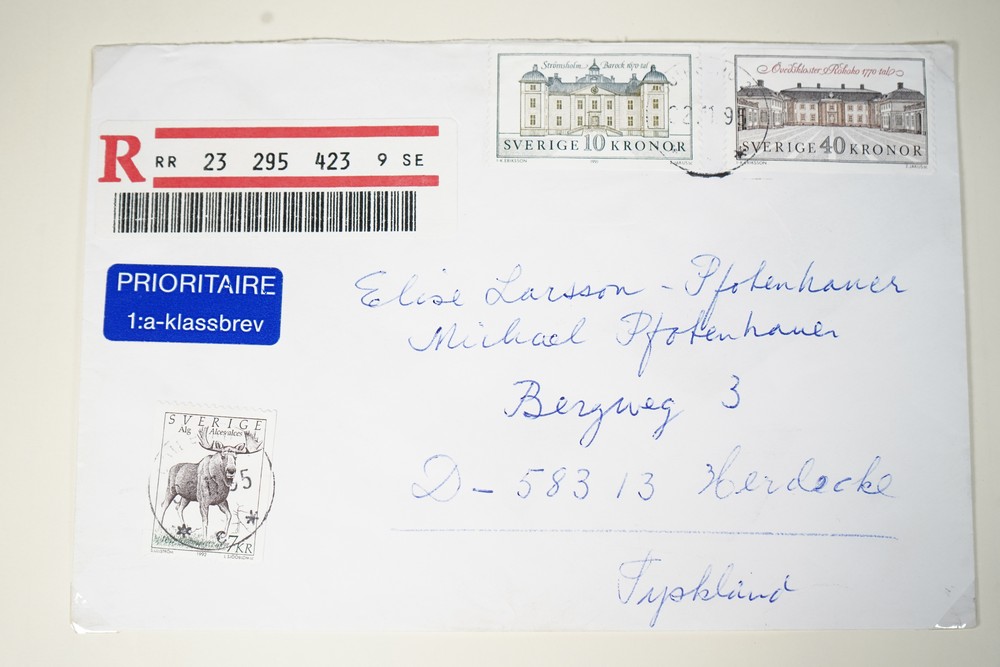 Strömsholm Barock 1670-tal
SVERIGE 10 KRONOR
Övedskloster Rokoko 1770 tal
SVERIGE 40 KRONOR
R RR 23 295 423 9 SE
PRIORITAIRE
1:a-klassbrev
Elise Larsson - Pfotenhauer
Michael Pfotenhauer
Bergweg 3
D - 58313 Herdecke
Tyskland
SVERIGE
Älg Alces alces
7 KR
1992